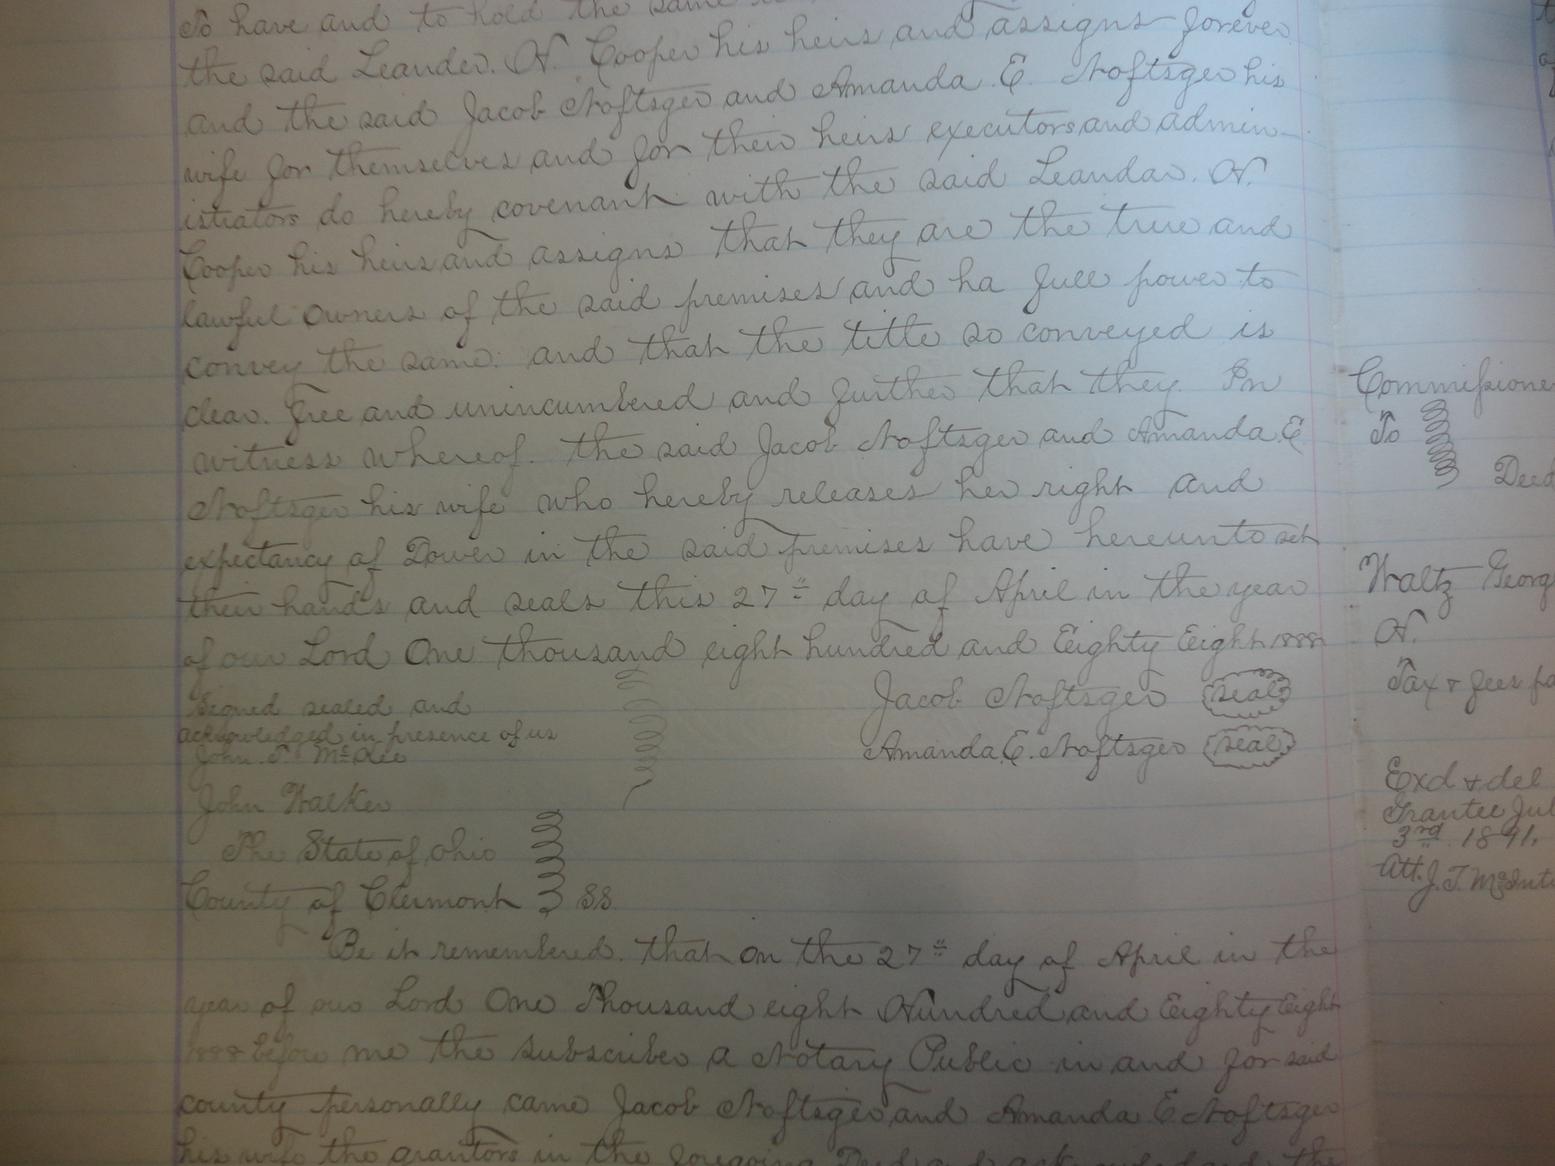 To have and to hold the same
the said Leander. H. Cooper his heirs and assigns forever
and the said Jacob Noftsger and Amanda E. Noftsger his
wife for themselves and for their heirs executors and admin-
istrators do hereby covenant with the said Leander. H.
Cooper his heirs and assigns that they are the true and
lawful owners of the said premises and ha full power to
convey the same: and that the title so conveyed is
clear. free and unincumbered and further that they. In
witness whereof. the said Jacob Noftsger and Amanda E
Noftsger his wife who hereby releases her right and
expectancy of Dower in the said premises have hereunto set
their hands and seals this 27th day of April in the year
of our Lord One thousand eight hundred and Eighty Eight 1888
Signed sealed and
acknowledged in presence of us
John
John Walker
Jacob Noftsger Seal
Amanda. E. Noftsger Seal
The State of Ohio
County of Clermont SS
Be it remembered. that on the 27th day of April in the
year of our Lord One Thousand eight Hundred and Eighty Eight
1888 before me the subscriber a Notary Public in and for said
county personally came Jacob Noftsger and Amanda E Noftsger
his wife the grantors in the foregoing Deed and acknowledged the
Commissione
To
Deed
Waltz Georg
H.
Tax + fees
Exd + del
Grantee Jul
3rd 1891.
Att. J. T.